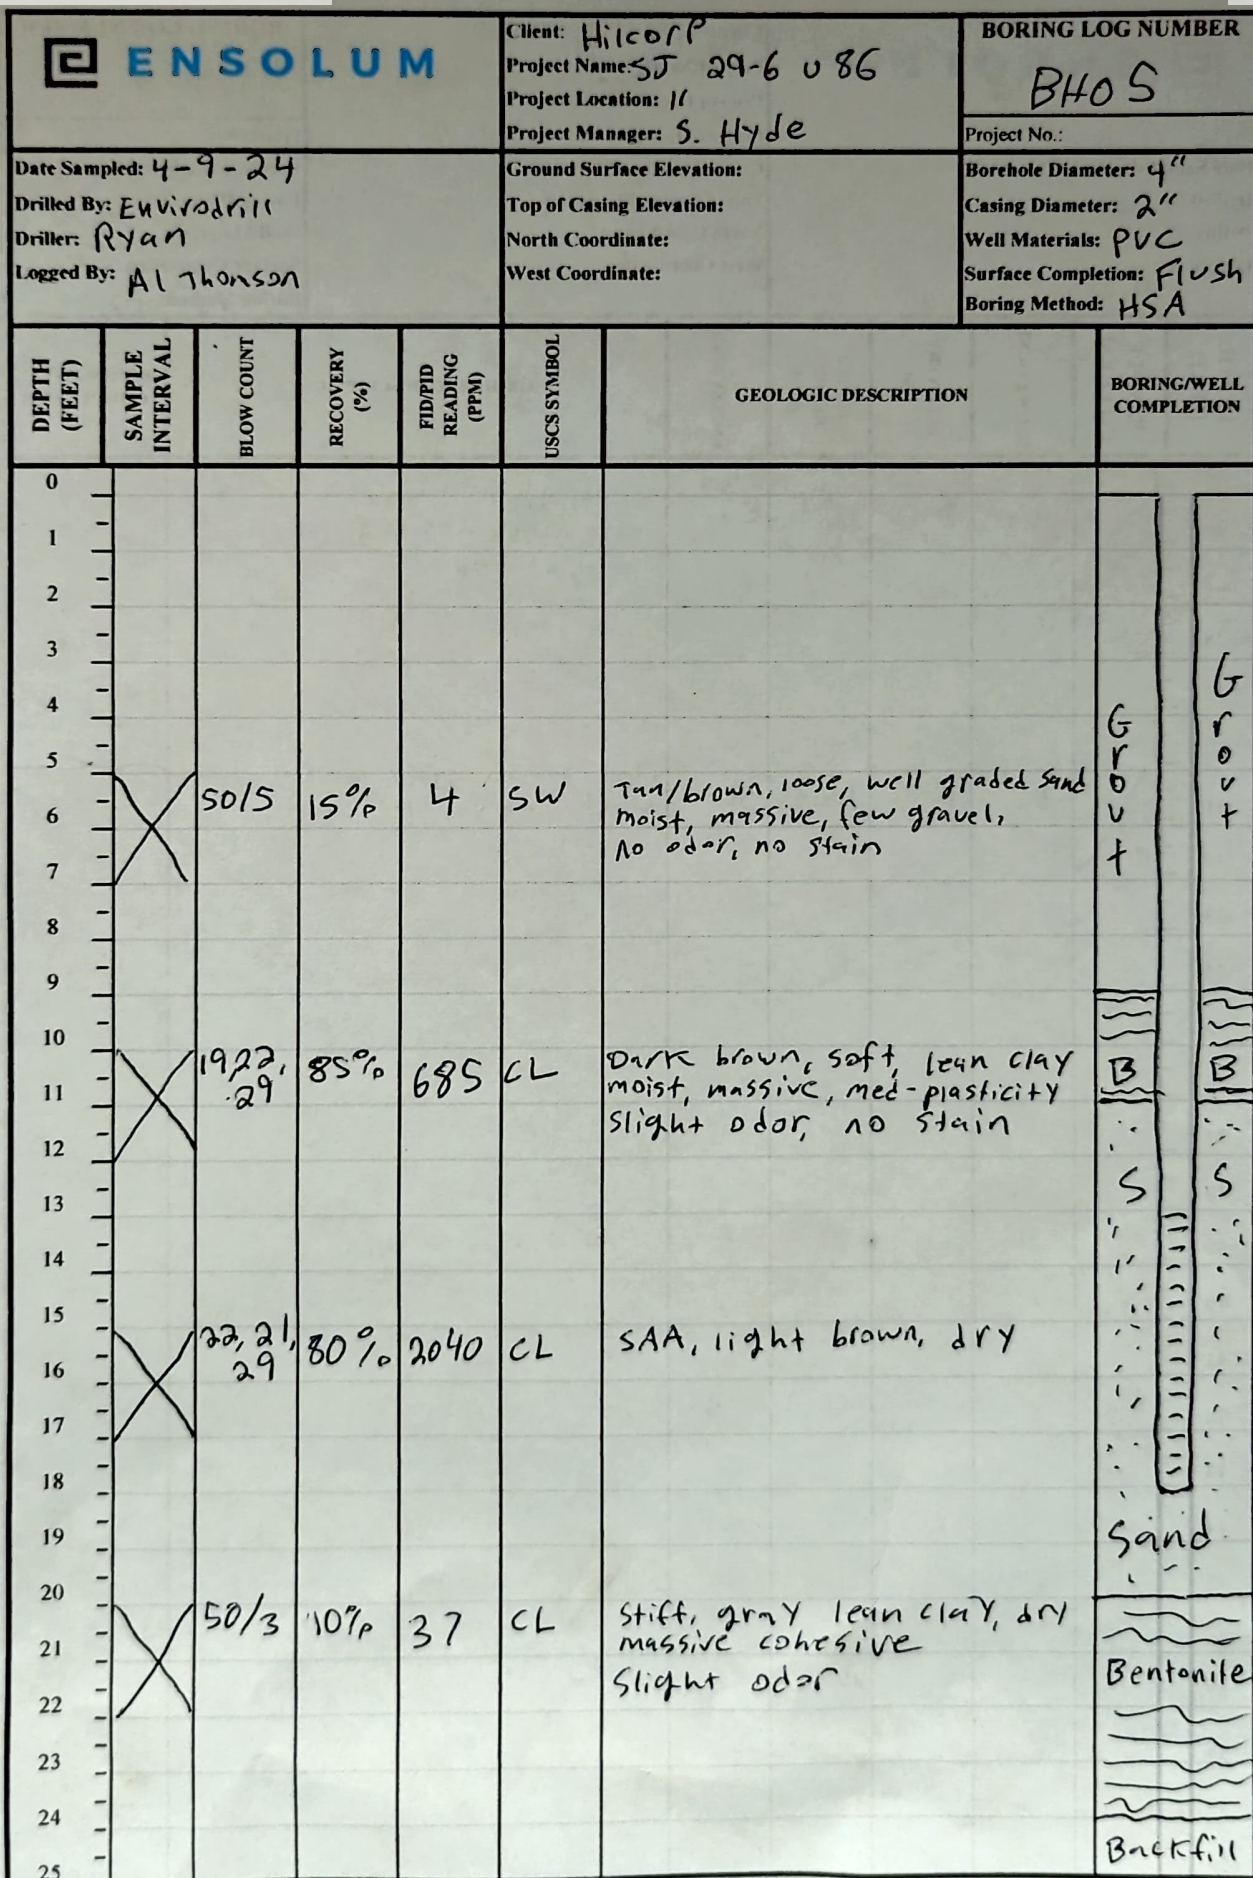 ENSOLUM
Client: Hilcorp
Project Name: SJ 29-6 U 86
Project Location: 11
Project Manager: S. Hyde
BORING LOG NUMBER
BH05
Project No.:
Date Sampled: 4-9-24
Drilled By: Envirodrill
Driller: Ryan
Logged By: Al Thomson
Ground Surface Elevation:
Top of Casing Elevation:
North Coordinate:
West Coordinate:
Borehole Diameter: 4"
Casing Diameter: 2"
Well Materials: PVC
Surface Completion: Flush
Boring Method: HSA
DEPTH (FEET)
SAMPLE INTERVAL
BLOW COUNT
RECOVERY (%)
FID/PID READING (PPM)
USCS SYMBOL
GEOLOGIC DESCRIPTION
BORING/WELL COMPLETION
0
1
2
3
4
5
Grout
Grout
50/5 15% 4 SW Tan/brown, loose, well graded sand
6 moist, massive, few gravel,
no odor, no stain
7
8
9
10
19,22, 85% 685 CL Dark brown, soft, lean clay B B
11 29 moist, massive, med-plasticity
slight odor, no stain
12
S S
13
14
15
22, 21, 80% 2040 CL SAA, light brown, dry
16 29
17
18
19 Sand
20
50/3 10% 37 CL Stiff, gray lean clay, dry
21 massive cohesive
Slight odor Bentonite
22
23
24
Backfill
25